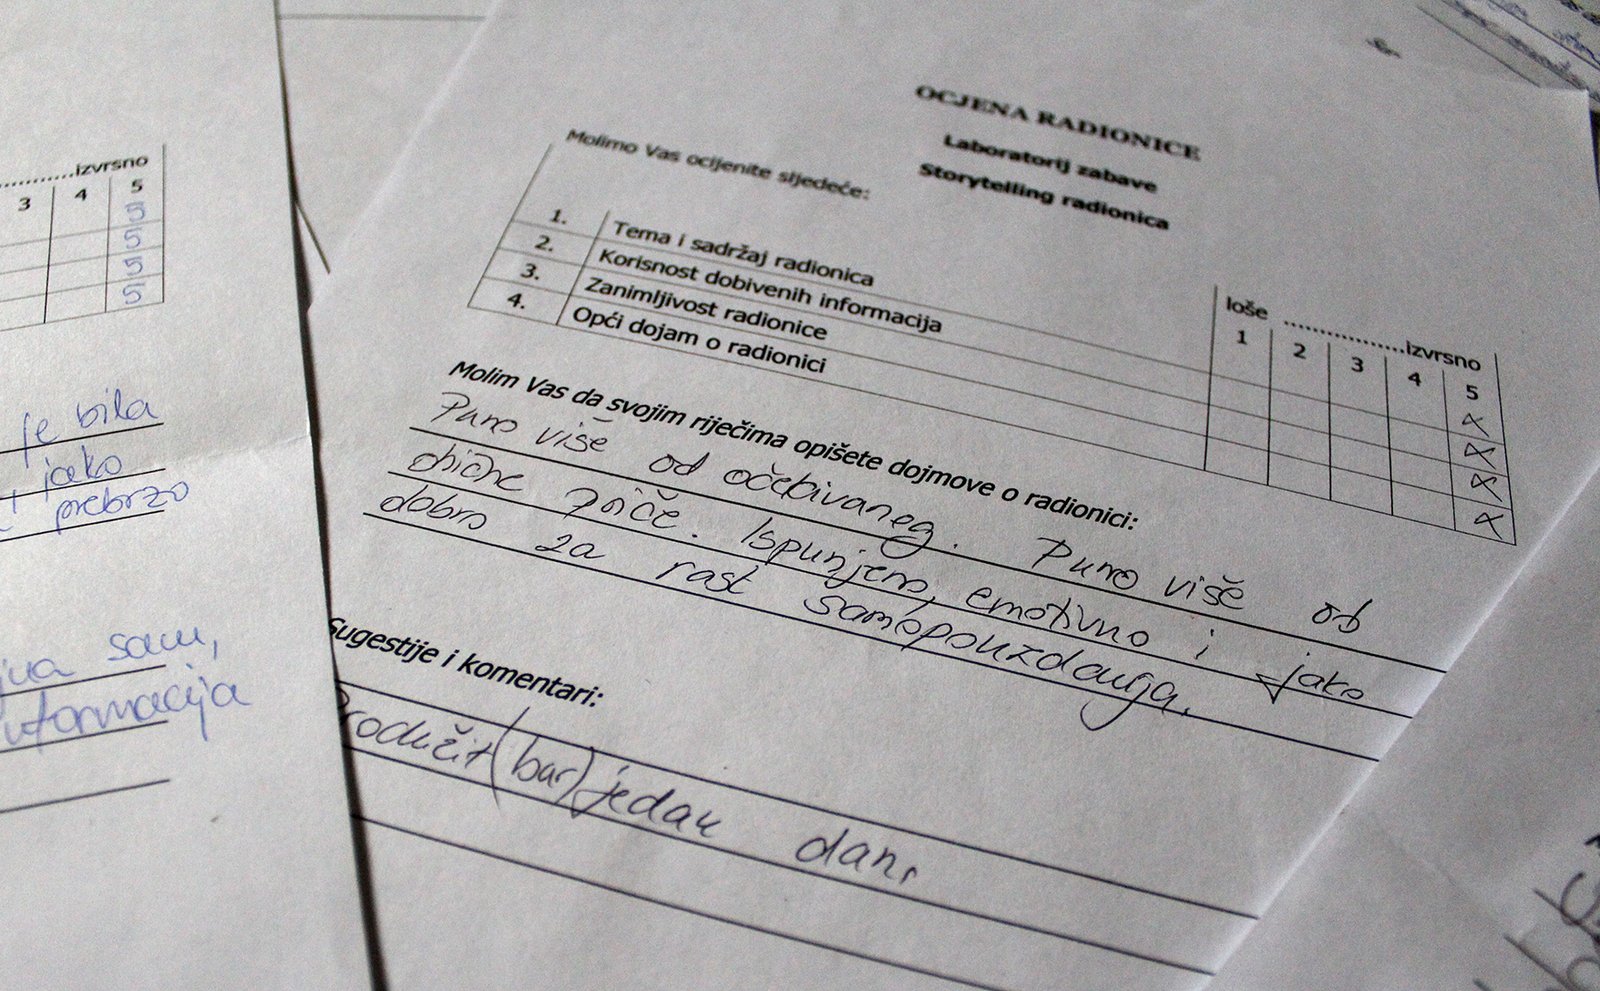 .........izvrsno
3 4 5
5
5
5
5
je bila
jako
prebrzo
sam,
informacija
OCJENA RADIONICE
Laboratorij zabave
Storytelling radionica
Molimo Vas ocijenite sljedeće:
loše ..................izvrsno
1 2 3 4 5
1. Tema i sadržaj radionica x
2. Korisnost dobivenih informacija x
3. Zanimljivost radionice x
4. Opći dojam o radionici x
Molim Vas da svojim riječima opišete dojmove o radionici:
Puno više od očekivaneg. Puno više od
obične priče. Ispunjeno, emotivno i jako
dobro za rast samopouzdanja.
Sugestije i komentari:
Produžit (bar) jedan dan.